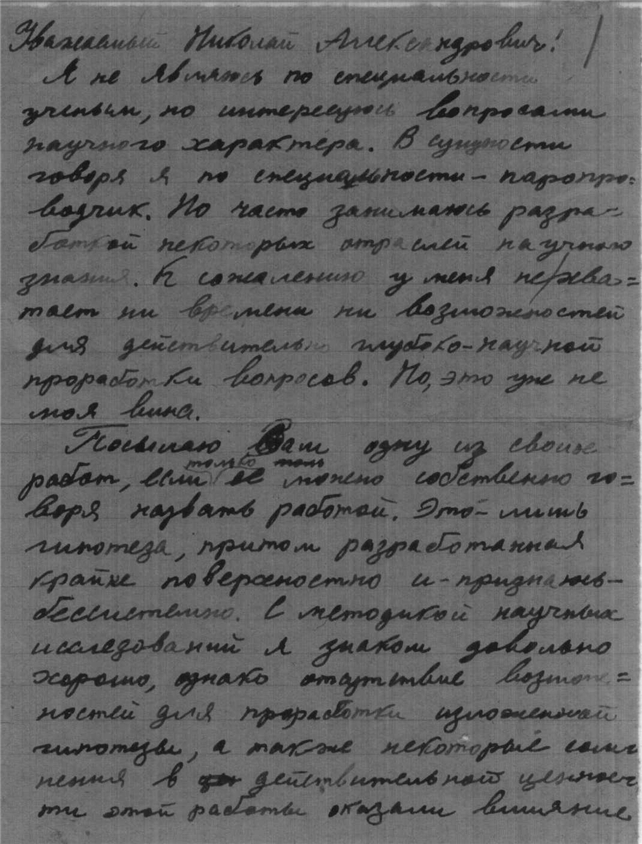 Уважаемый Николай Александрович!
Я не являюсь по специальности
ученым, но интересуюсь вопросами
научного характера. В сущности
говоря я по специальности – паропро=
водчик. Но часто занимаюсь разра=
боткой некоторых отраслей научного
знания. К сожалению у меня не хва=
тает ни времени ни возможностей
для действительно глубоко-научной
проработки вопросов. Но, это уже не
моя вина.
Посылаю Вам одну из своих
работ, если только ее можно собственно го=
воря назвать работой. Это – лишь
гипотеза, притом разработанная
крайне поверхностно и – признаюсь –
бессистемно. С методикой научных
исследований я знаком довольно
хорошо, однако отсутствие возмож=
ностей для проработки изложенной
гипотезы, а также некоторые сом
нения в действительной ценнос
ти этой работы оказали влияние